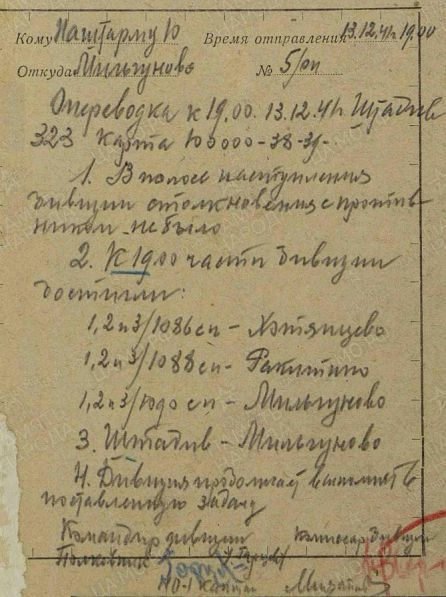 Кому Наштарму 10 Время отправления 13.12.41г 19.00
Откуда Мильгуново № б/оп
Опереводка к 19.00. 13.12.41г Штадив
323 карта 100000-38-39-
1. В полосе наступления
дивизии столкновения с против
ником не было
2. К 19.00 части дивизии
достигли:
1,2 и 3/1086 сп - Хотянцево
1,2 и 3/1088 сп - Ракитино
1,2 и 3/1090 сп - Мильгуново
3. Штадив - Мильгуново
4. Дивизия продолжает выполнять
поставленную задачу
Командир дивизии Комиссар дивизии
Полковник
НО-1 Капитан